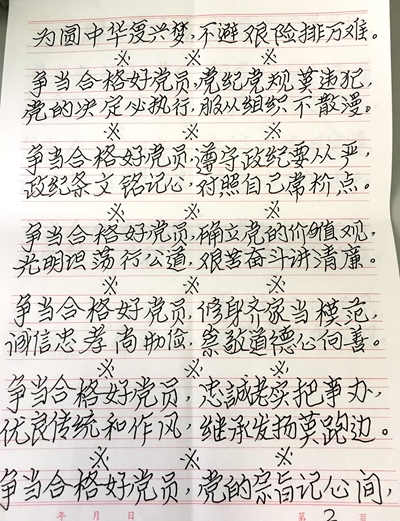 为圆中华复兴梦,不避艰险排万难。
※ ※ ※
争当合格好党员,党纪党规莫违犯,
党的决定必执行,服从组织不散漫。
※ ※ ※
争当合格好党员,遵守政纪要从严,
政纪条文铭记心,对照自己常检点。
※ ※ ※
争当合格好党员,确立党的价值观,
光明坦荡行公道,艰苦奋斗讲清廉。
※ ※ ※
争当合格好党员,修身齐家当模范,
诚信忠孝尚勤俭,崇敬道德心向善。
※ ※ ※
争当合格好党员,忠誠老实把事办,
优良传统和作风,继承发扬莫跑边。
※ ※ ※
争当合格好党员,党的宗旨记心间,
年 月 日 第 2 页